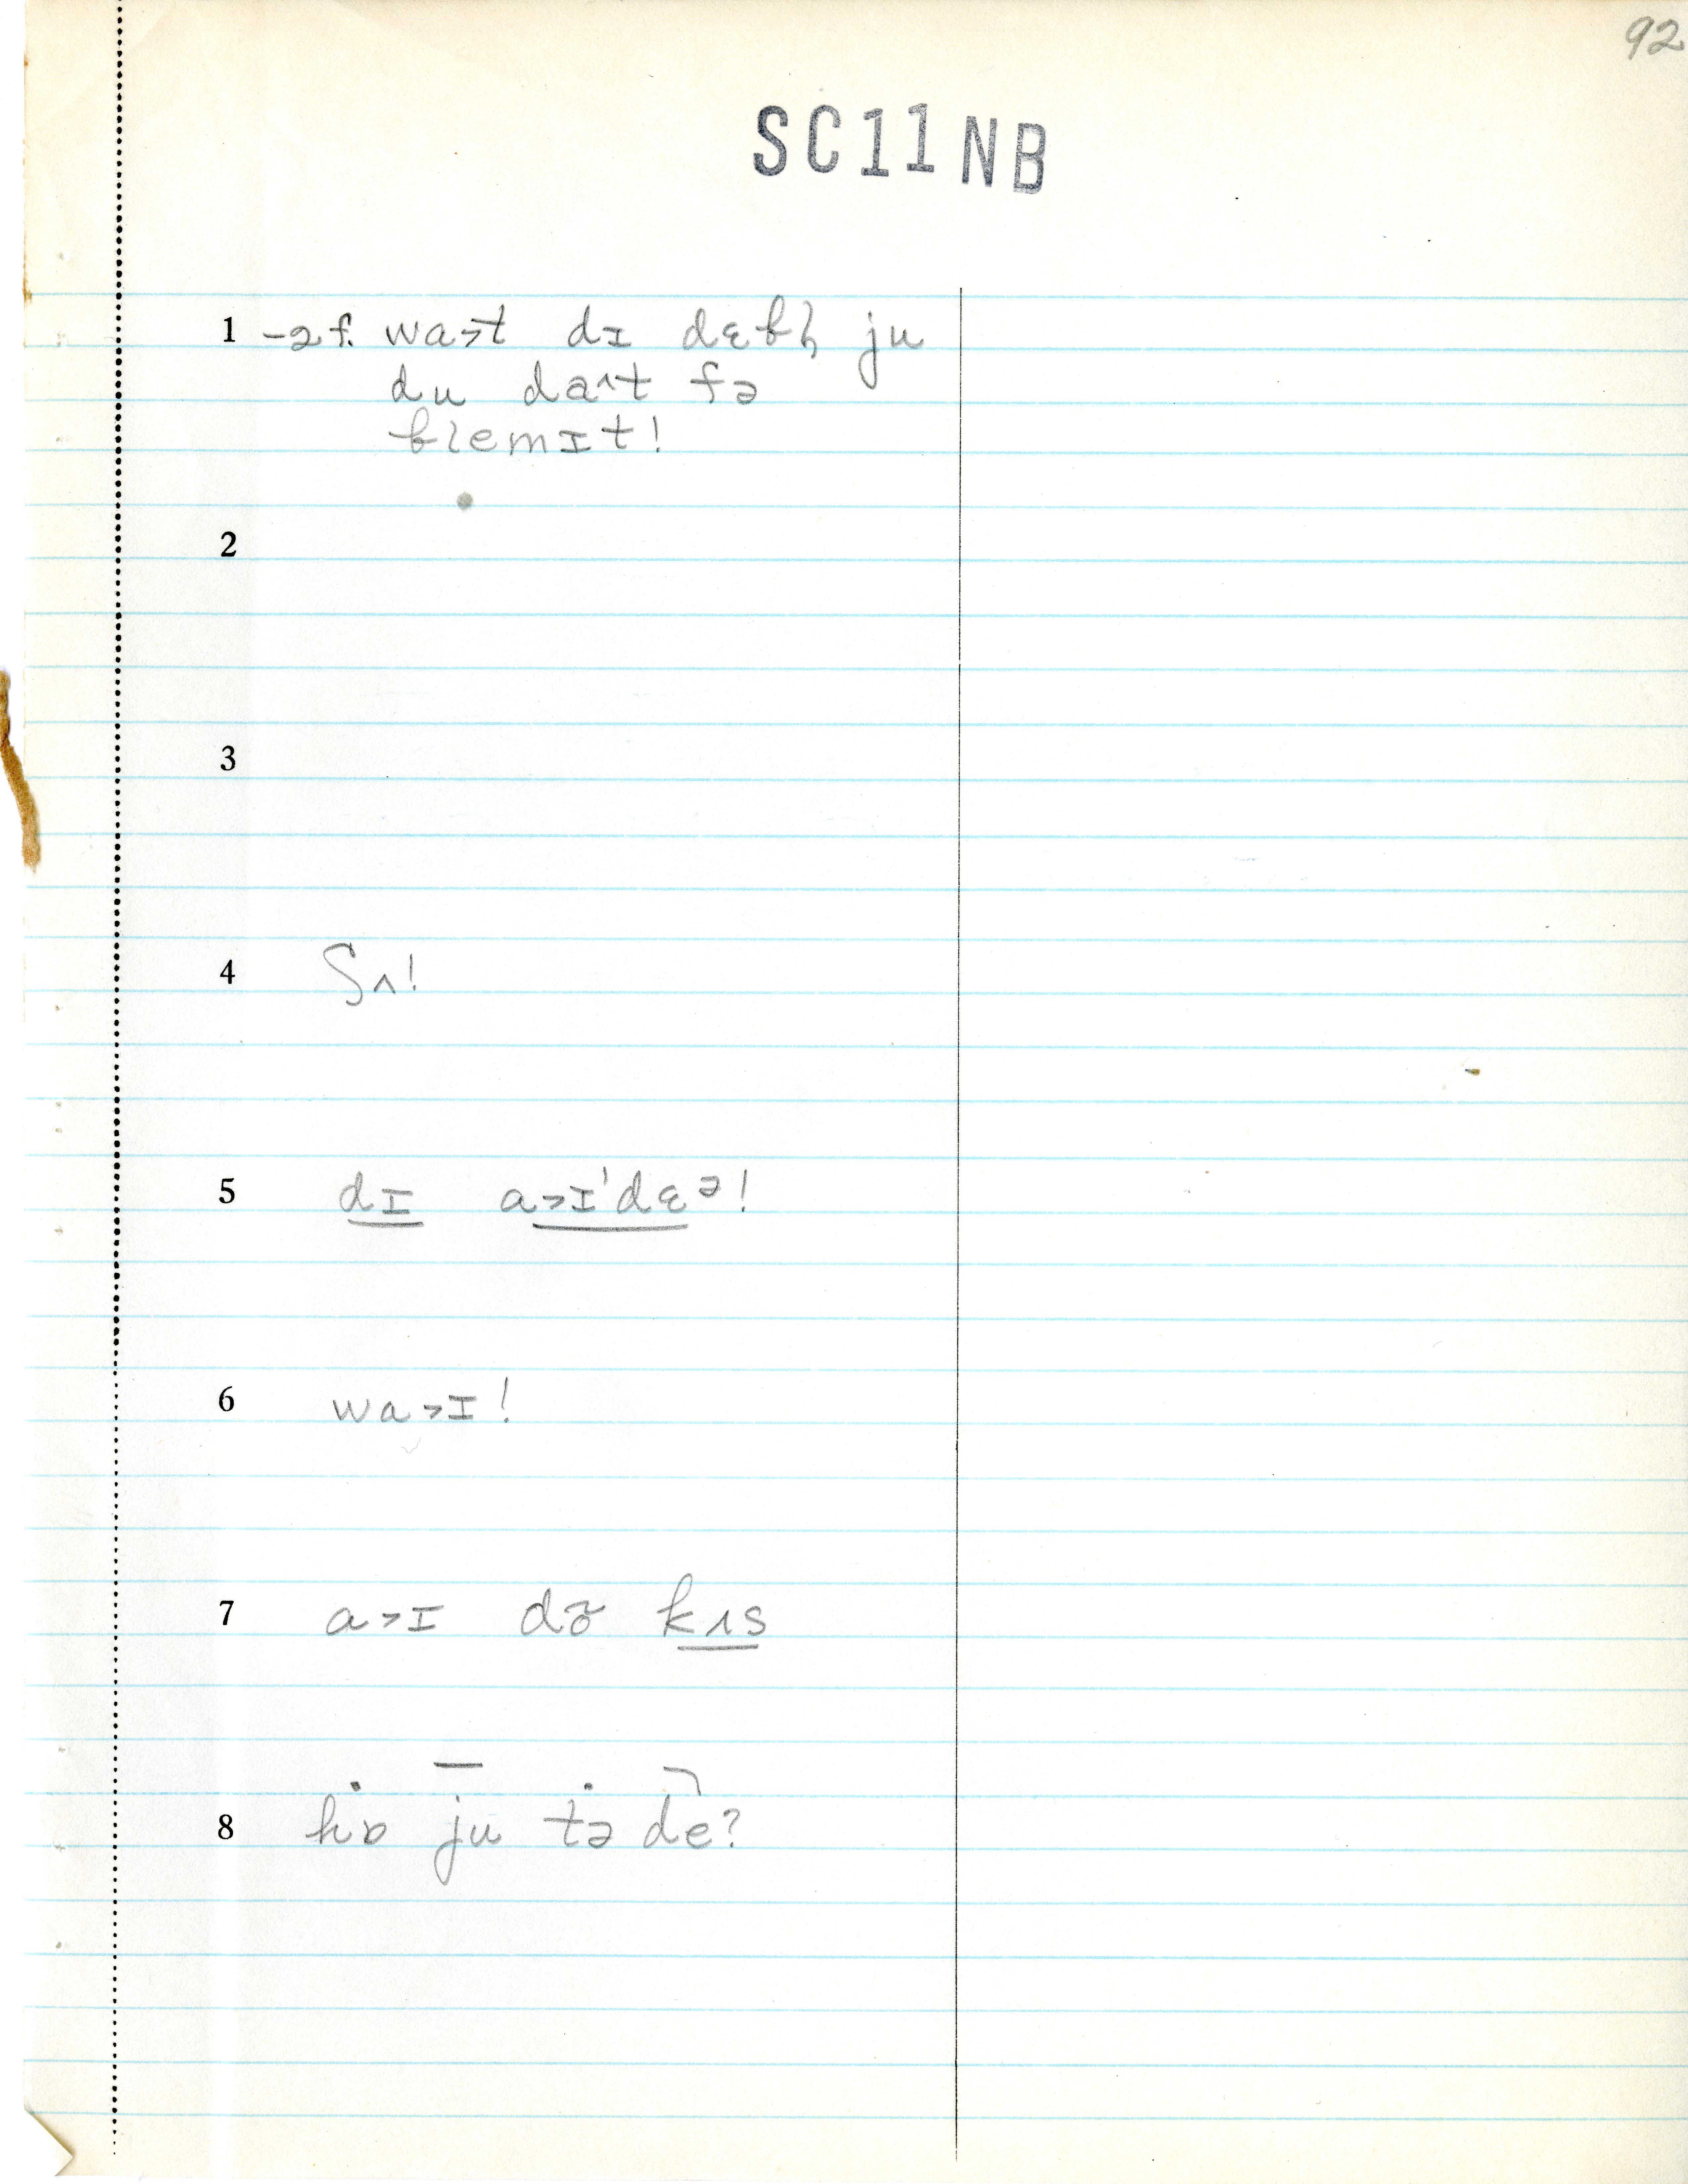 92
SC11NB
1 -2 f. wa˃t dɪ dɛbl̩ ju
du da˄t fə
blemɪt!
2
3
4 ʃʌ!
5 dɪ a˃ɪ'dɛᵊ!
6 wa˃ɪ!
7 a˃ɪ də̃ kʌs
8 hɒ ju tə de?